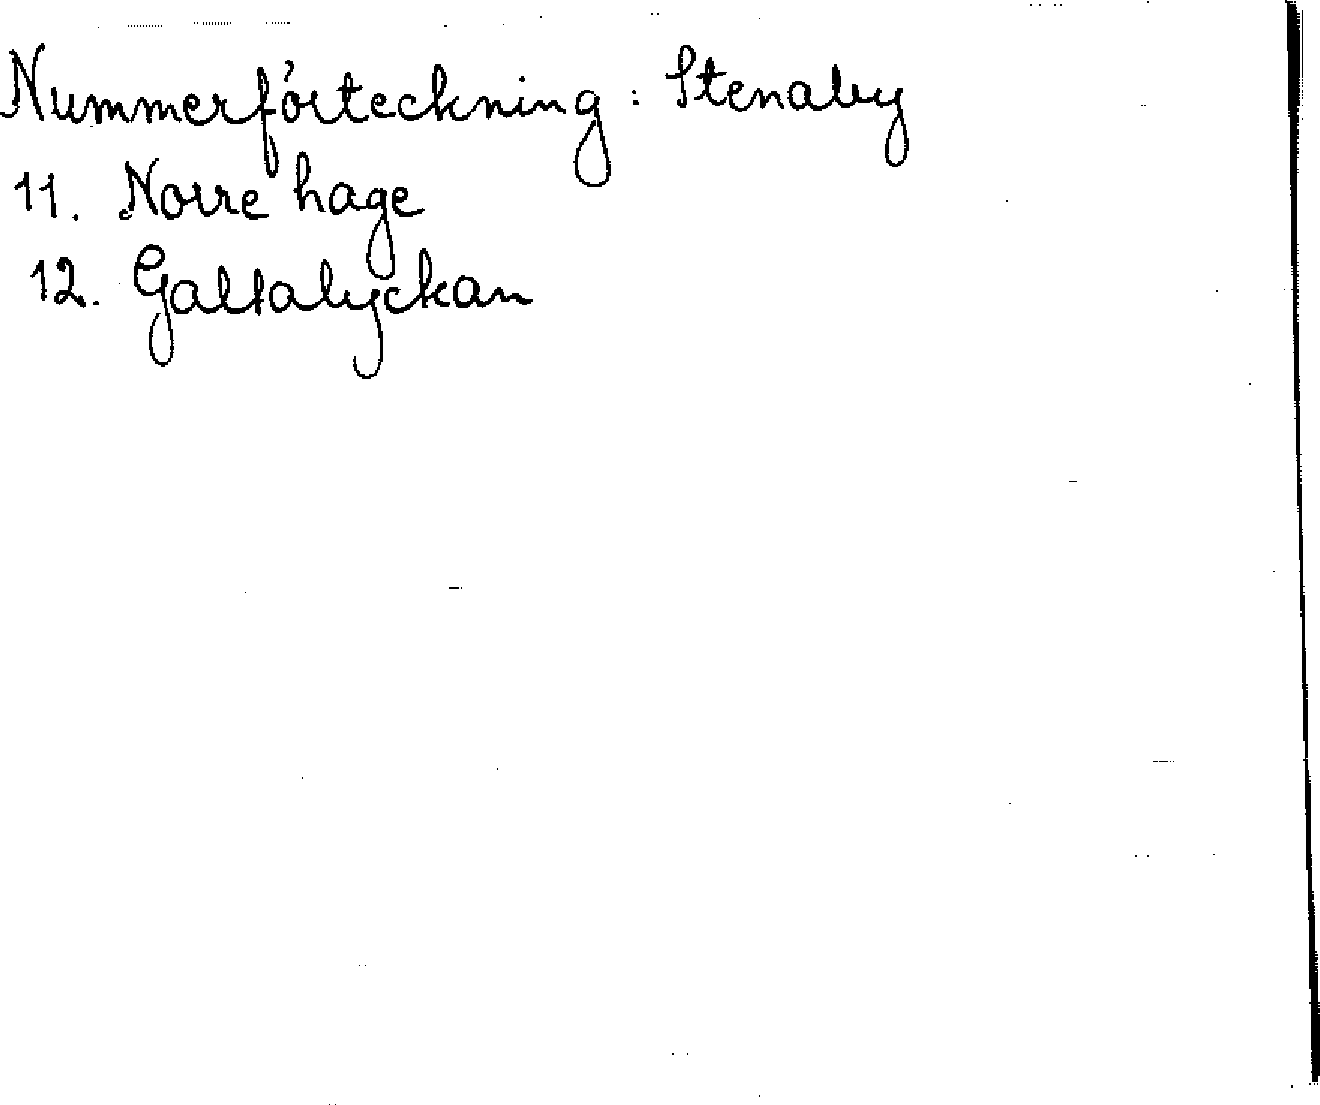 Nummerförteckning: Stenaby
11. Norre hage
12. Galtalyckan